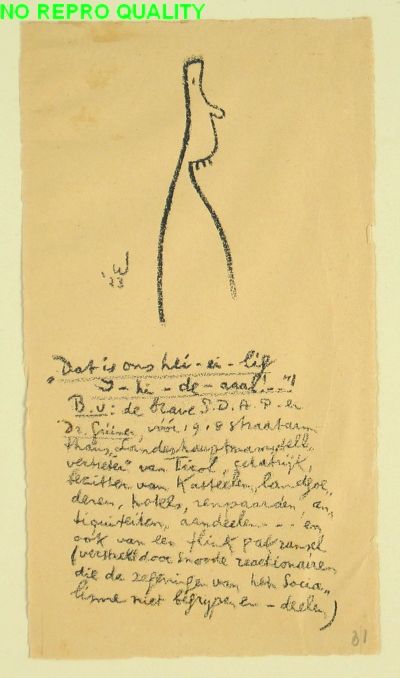 NO REPRO QUALITY
W
'23
„Dat is ons hei-ei-lig
I-hi-de-aaal!.."!
B.v: de brave S.D.A.P-er
Dr. Grüner, vóór 1918 straatarm
thans „Landeshauptmannstell-
vertreter" van Tirol, schatrijk,
bezitter van Kasteelen, landgoe„
deren, hotels, renpaarden, an„
tiquiteiten, aandeelen - - - en
ook van een flink pak ransel
(verstrekt door snoode reactionairen
die de zegeningen van het Socia„
lisme niet begrypen en - deelen)
31